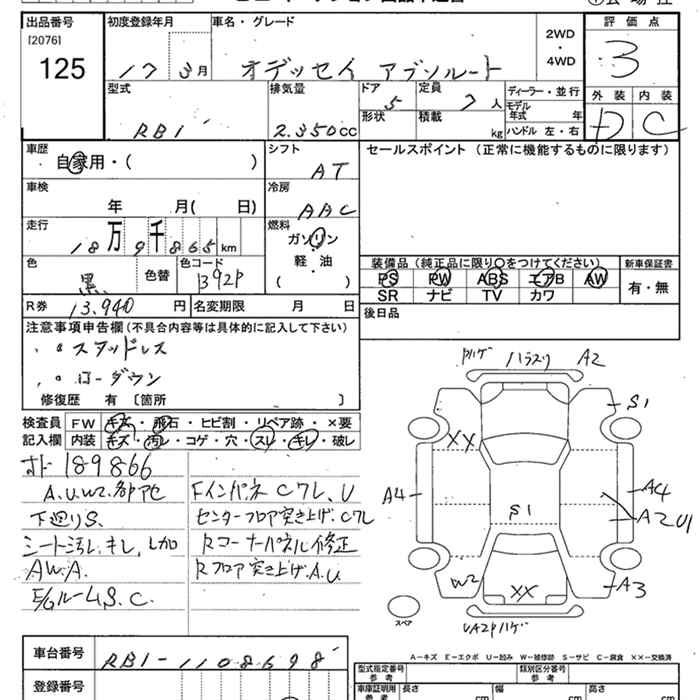 出品番号 初度登録年月 車名・グレード 2WD・4WD 評価点
[2076]
125 17 3月 オデッセイ アブソルート 3
型式 排気量 ドア 定員 ディーラー・並行 外装 内装
RB1 2.350cc 5 7人 モデル年式 年 D C
形状 積載 kg ハンドル 左・右
車歴 シフト セールスポイント (正常に機能するものに限ります)
自家用・( ) AT
車検 冷房
年 月( 日) AAC
走行 燃料
18万9千865km ガソリン・軽油
( )
色 色替 色コード 装備品 (純正品に限り○をつけてください) 新車保証書
黒 B92P PS PW ABS エアB AW 有・無
SR ナビ TV カワ
R券 13.940円 名変期限 月 日 後日品
注意事項申告欄(不具合内容等は具体的に記入して下さい)
・スタッドレス
・ローダウン
修復歴 有 〔箇所 〕
検査員記入欄 FW キズ・飛石・ヒビ割・リペア跡・×要
内装 キズ・汚レ・コゲ・穴・スレ・キレ・破レ
189866
A.U.W2.各部アセ FインパネCワレ、U
下廻りS. センターフロア突き上げ、Cワレ
Rコーナーパネル修正
AWA. Rフロア突き上げ.A.U
E/GルームS.C.
A2
S1
XX
A4
S1
A4
A2U1
W2
XX
A3
スペア
A−キズ E−エクボ U−凹み W−補修跡 S−サビ C−腐食 XX−交換済
車台番号 RB1-1108698 型式指定番号 参考 類別区分番号 参考
登録番号 車庫証明用 参考 長さ cm 幅 cm 高さ cm